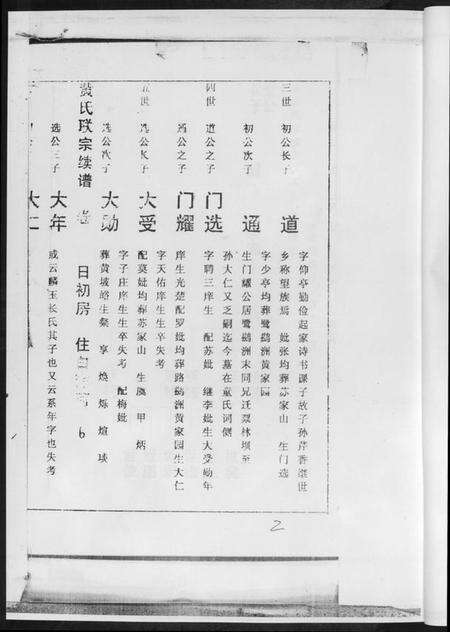 三世 初公长子 道 字仰亭勤俭起家诗书课子故子孙芹香继世
乡称望族焉 妣张均葬苏家山 生门选
初公次子 通 字少亭均葬鹭鹚洲黄家园
生门耀公居鹭鹚洲末同兄迁聂林坝至
孙大仁又乏嗣迄今墓在童氏词侧
四世 道公之子 门选 字聘三庠生 配苏妣 继李妣生大受助年
通公之子 门耀 庠生光楚配罗妣均葬路鹚洲黄家园生大仁
五世 选公长子 大受 字天佑庠生生卒失考
配莫妣均葬苏家山 生 甲 炳
选公次子 大助 字子庄庠生生卒失考 配梅妣
葬黄坡峪生燊 享 焕 烁 煊 琰
氏联宗续谱 卷 日初房 住 6
选公三子 大年 或云麟玉长氏其子也又云系年字也失考
大仁
2